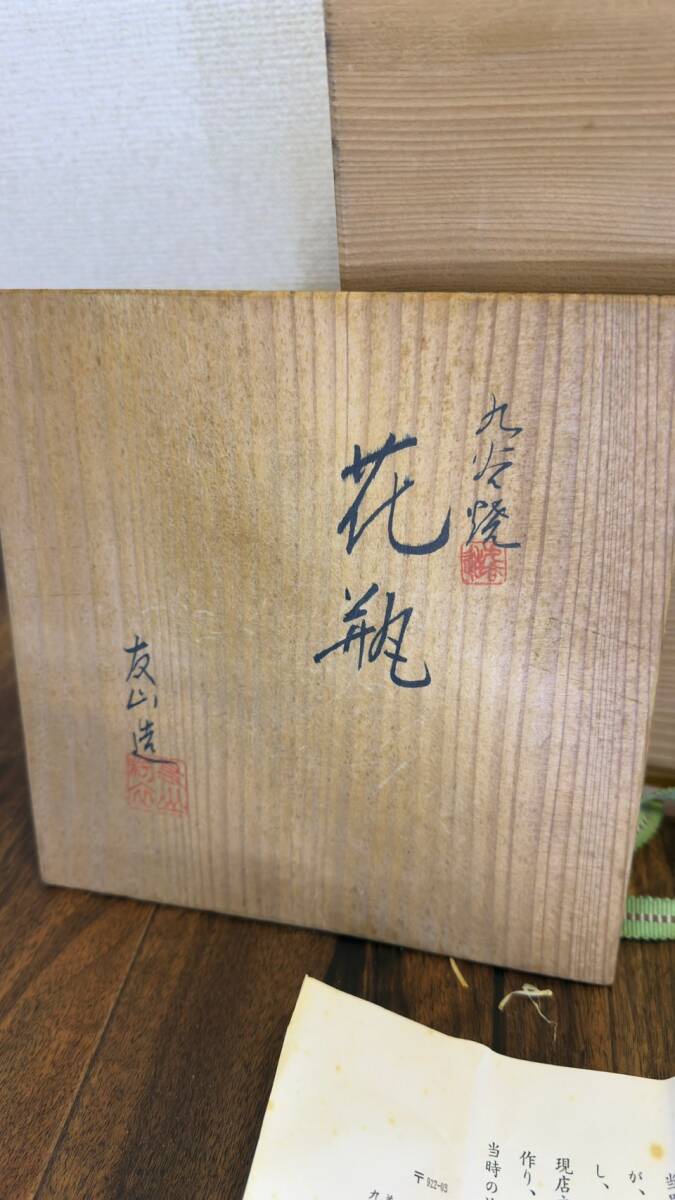 九谷焼
花瓶
友山造
が、
し、
現店
作り、
当時の
〒922-03